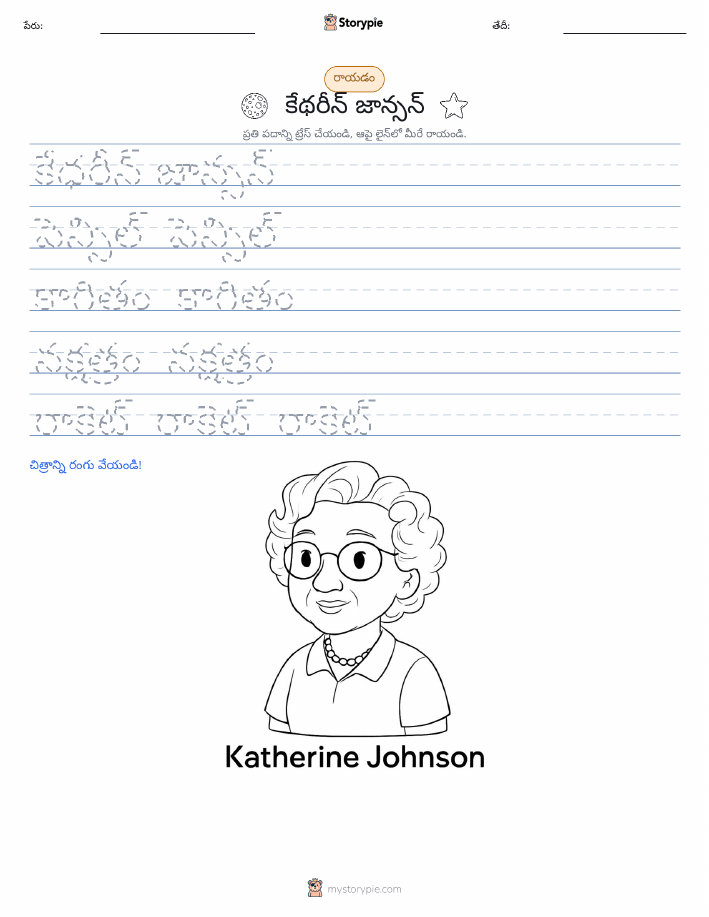 పేరు:
Storypie
తేదీ:
రాయడం
కేథరీన్ జాన్సన్
ప్రతి పదాన్ని ట్రేస్ చేయండి, ఆపై లైన్‌లో మీరే రాయండి.
కేథరీన్ జాన్సన్
పెన్సిల్ పెన్సిల్
కాగితం కాగితం
నక్షత్రం నక్షత్రం
రాకెట్ రాకెట్ రాకెట్
చిత్రాన్ని రంగు వేయండి!
Katherine Johnson
mystorypie.com